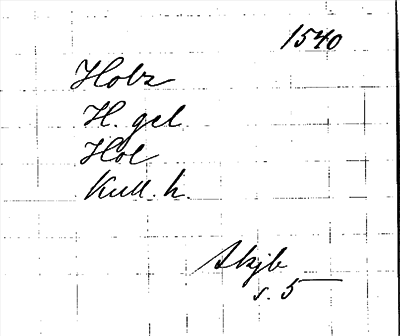 1540
Holz
H. gel
Hol
Kull. h.
Skjb
s. 5